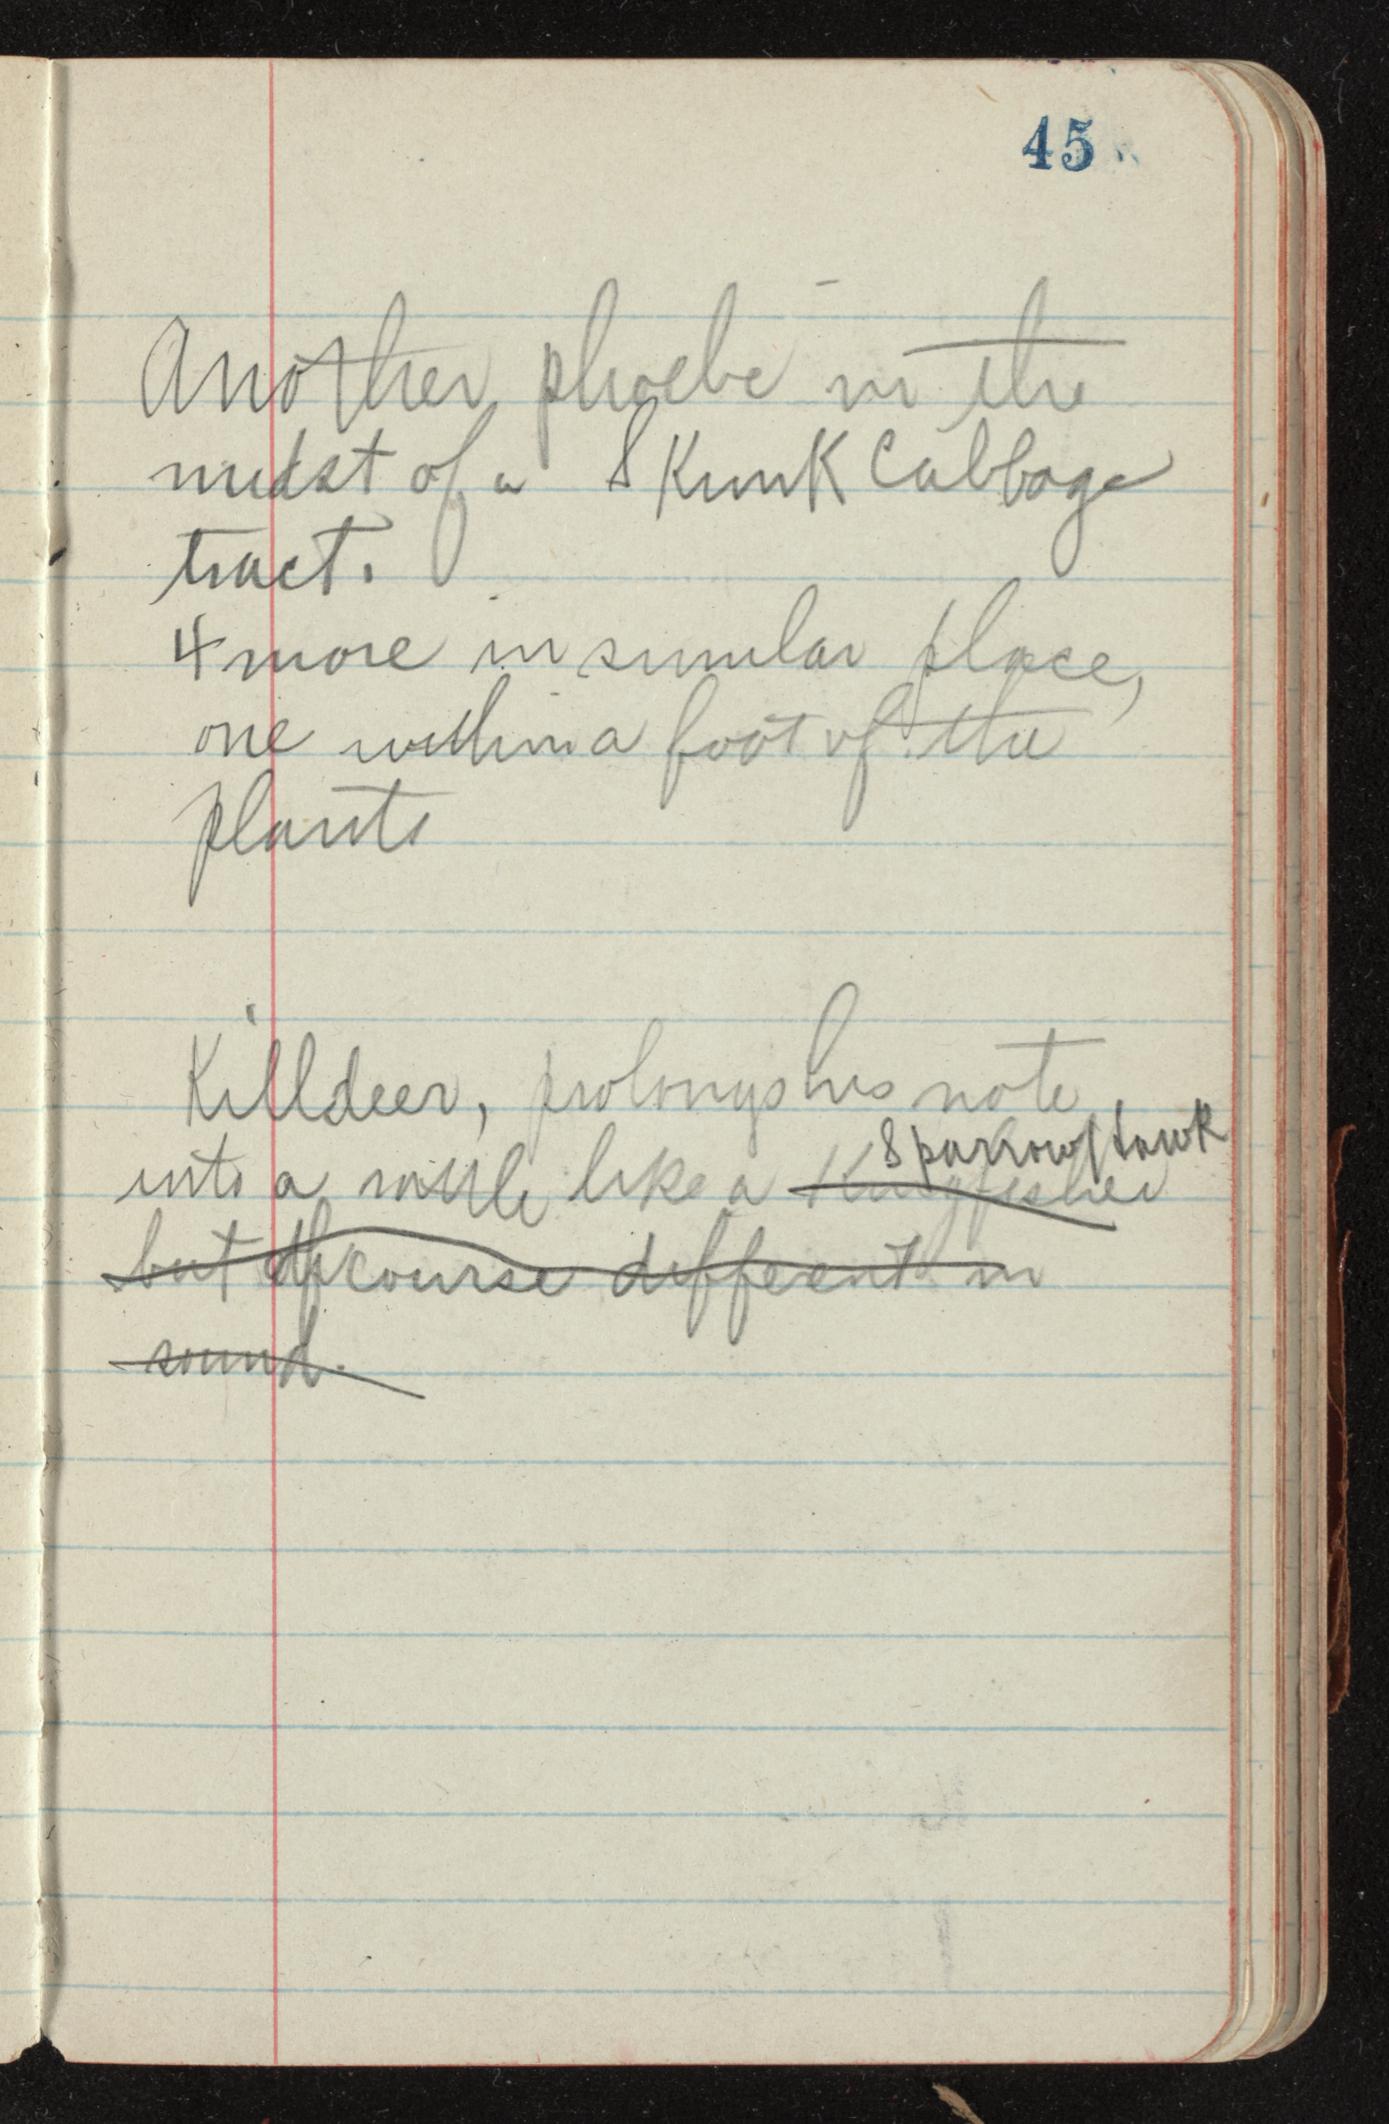 45
Another phoebe in the
midst of a Skunk Cabbage
tract.
4 more in similar place,
one within a foot of the
plants
Killdeer, prolongs his note
Sparrow Hawk
into a rattle like a Kingfisher
but of course different in
sound.